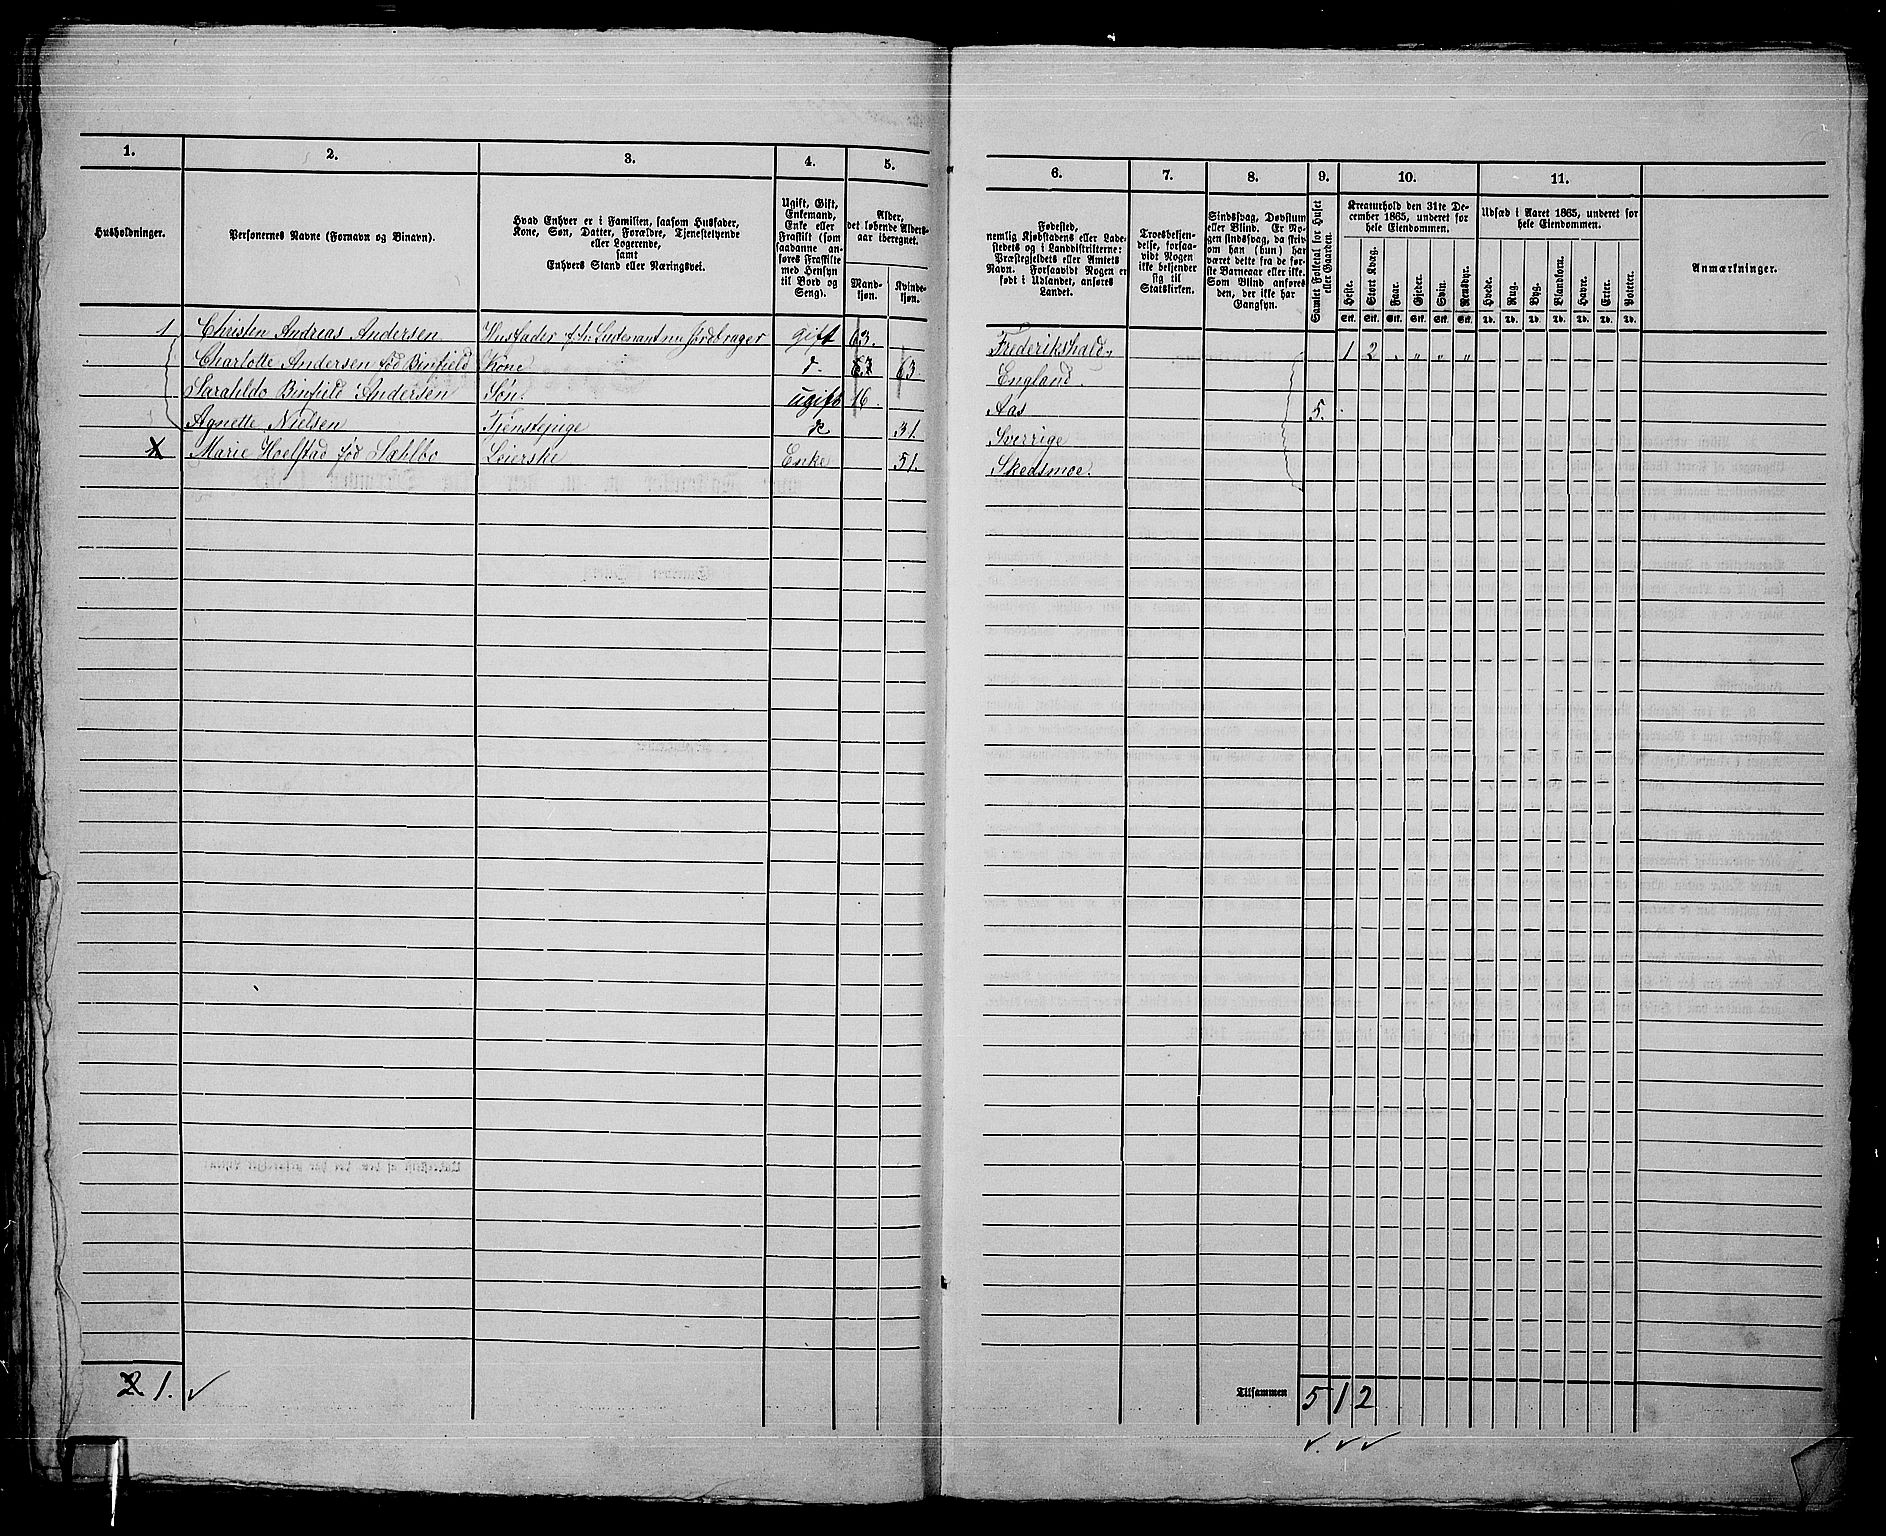 1. 2. 3. 4. 5.
Husholdninger.
Personernes Navne (Fornavn og Binavn).
Hvad Enhver er i Familien, saasom Husfader,
Kone, Søn, Datter, Forældre, Tjenestetyende
eller Logerende,
samt
Enhvers Stand eller Næringsvei.
Ugift, Gift,
Enkemand,
Enke eller
Fraskilt (som
saadanne an-
føres Fraskilte
med Hensyn
til Bord og
Seng).
Alder,
det løbende Alders-
aar iberegnet.
Mand-
kjøn.
Kvinde-
kjøn.
1 Christen Andreas Andersen Husfader Jordbruger gift 63.
Charlotte Andersen fød Binfield Kone d. 63
Binfield Andersen Søn. ugift 16.
Agnette Nielsen Tienstepige d 31.
Marie Hoelstad fød Sahlbo Leierske Enke 51.
2 1.
6. 7. 8. 9. 10. 11.
Fødested,
nemlig Kjøbstadens eller Lade-
stedets og i Landdistrikterne:
Præstegjeldets eller Amtets
Navn. Forsaavidt Nogen er
født i Udlandet, anføres
Landet.
Troesbekjen-
delse, forsaa-
vidt Nogen
ikke bekjender
sig til
Statskirken.
Sindssvag, Døvstum
eller Blind. Er No-
gen sindssvag, da skriv
om han (hun) har
været dette fra de før-
ste Barneaar eller ikke.
Som Blind anføres
den, der ikke har
Gangsyn.
Samlet Folketal for Huset
eller Gaarden.
Kreaturhold den 31te De-
cember 1865, underet for
hele Eiendommen.
Heste. Stort Kvæg. Faar. Gjeder. Svin. Rensdyr.
Stk. Stk. Stk. Stk. Stk. Stk.
Udsæd i Aaret 1865, underet for
hele Eiendommen.
Hvede. Rug. Byg. Blandkorn. Havre. Erter. Poteter.
Td. Td. Td. Td. Td. Td. Td.
Anmærkninger.
Frederikshald. 1 2 „ „ „ „
England.
Aas 5.
Sverrige
Skedsmoe.
Tilsammen 5 1 2